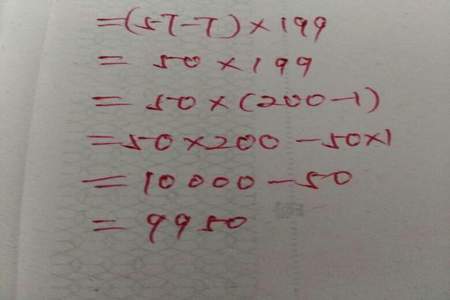 =(57-7)×199
= 50×199
= 50×(200-1)
=50×200-50×1
= 10000-50
= 9950